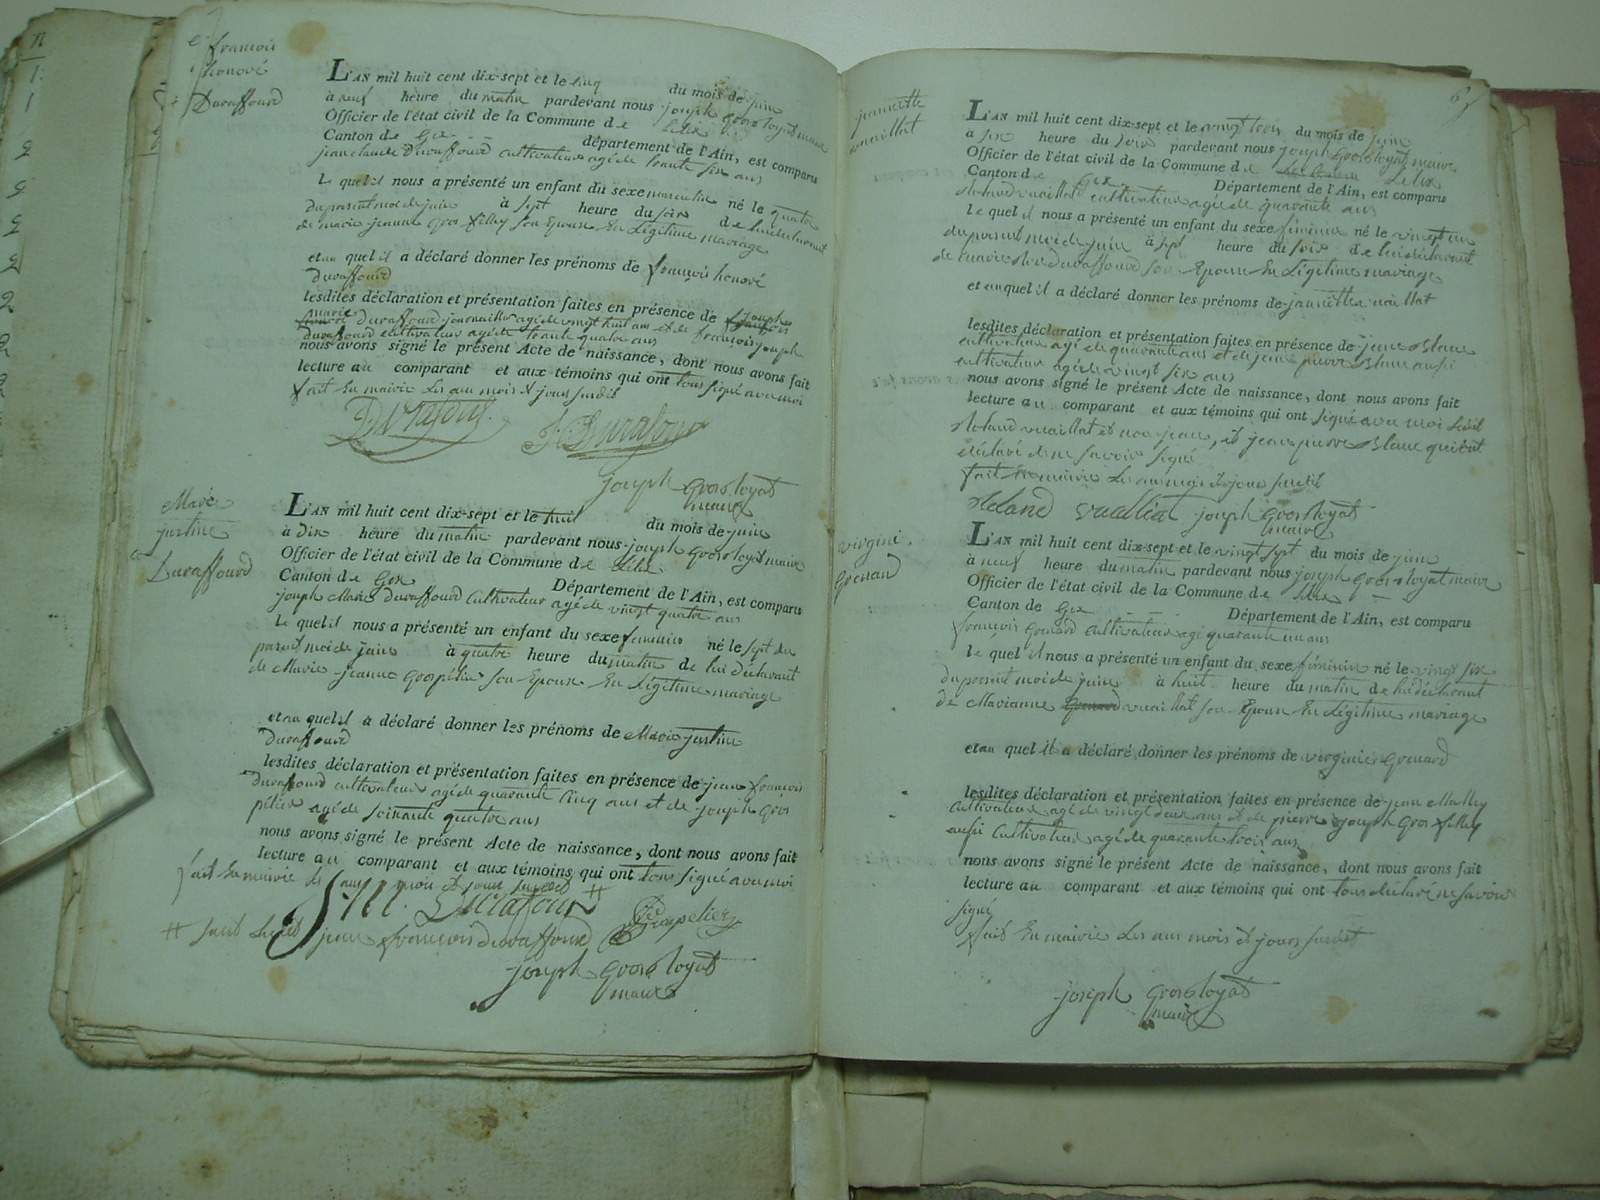 françois
honoré
Duraffourd
L'AN mil huit cent dix-sept et le cinq du mois de juin
à neuf heure du matin pardevant nous joseph Grosloyat maire
Officier de l'état civil de la Commune de Lelex
Canton de Gex département de l'Ain, est comparu
jean claude Duraffourd cultivateur agé de trante six ans
Le quel il nous a présenté un enfant du sexe masculin né le quatre
du present mois de juin à sept heure du soir de lui declarant
de marie jeanne Gros filley son Epouse En Légitime mariage
et au quel il a déclaré donner les prénoms de françois honoré
Duraffourd
lesdites déclaration et présentation faites en présence de joseph
marie Duraffourd journaillier agé de vingt huit ans et de françois joseph
Duraffourd cultivateur agé de trante quatre ans
nous avons signé le présent Acte de naissance, dont nous avons fait
lecture au comparant et aux témoins qui ont tous signé avec moi
fait En mairie Les an mois et jour susdit
Joseph Grosloyat
maire
Marie
justine
Duraffourd
L'AN mil huit cent dix-sept et le huit du mois de juin
à dix heure du matin pardevant nous joseph Grosloyat maire
Officier de l'état civil de la Commune de Lelex
Canton de Gex Département de l'Ain, est comparu
joseph Marie Duraffourd Cultivateur agé de vingt quatre ans
Le quel il nous a présenté un enfant du sexe feminin né le sept du
present moi de juin à quatre heure du matin de lui déclarant
de Marie jeanne Grospelier son Epouse En Légitime mariage
et au quel il a déclaré donner les prénoms de Marie justine
Duraffourd
lesdites déclaration et présentation faites en présence de jean françois
Duraffourd cultivateur agé de quarante cinq ans et de joseph Gros
pelier agé de soixante quatre ans
nous avons signé le présent Acte de naissance, dont nous avons fait
lecture au comparant et aux témoins qui ont tous signé avec moi
fait En mairie les an mois et jour susdit #
J. M. Durafour
# jean françois duraffourd
joseph Grosloyat
maire
jeannette
vuaillat
L'AN mil huit cent dix-sept et le vingt trois du mois de juin
à six heure du soir pardevant nous joseph Grosloyat maire
Officier de l'état civil de la Commune de Lelex
Canton de Gex Département de l'Ain, est comparu
Roland vuaillat cultivateur agé de quarante ans
Le quel il nous a présenté un enfant du sexe féminin né le vingt un
du present moi de juin à sept heure du soir de lui déclarant
de marie Duraffourd son Epouse En Légitime mariage
et au quel il a déclaré donner les prénoms de jannette vuaillat
lesdites déclaration et présentation faites en présence de jean Blanc
cultivateur agé de quarante ans et de jean pierre Blanc aussi
cultivateur agé de vingt six ans
nous avons signé le présent Acte de naissance, dont nous avons fait
lecture au comparant et aux témoins qui ont signé avec moi ledit
Roland vuaillat et non jean, et jean pierre Blanc qui ont
déclaré de ne savoir signé
fait En mairie Les an mois et jour susdit
Roland vuaillat joseph Grosloyat
maire
virginie
Grenard
L'AN mil huit cent dix-sept et le vingt sept du mois de juin
à neuf heure du matin pardevant nous joseph Grosloyat maire
Officier de l'état civil de la Commune de Lelex
Canton de Gex Département de l'Ain, est comparu
françois Grenard cultivateur agé quarante un ans
Le quel il nous a présenté un enfant du sexe féminin né le vingt six
du present moi de juin à huit heure du matin de lui déclarant
De Marianne vuaillat son Epouse En Légitime mariage
et au quel il a déclaré donner les prénoms de virginie Grenard
lesdites déclaration et présentation faites en présence de jean Malley
cultivateur agé de vingt deux ans et de pierre joseph Gros filley
aussi Cultivateur agé de quarante trois ans
nous avons signé le présent Acte de naissance, dont nous avons fait
lecture au comparant et aux témoins qui ont tous déclaré ne savoir
signé
fait En mairie Les an mois et jour susdit
joseph Grosloyat
maire